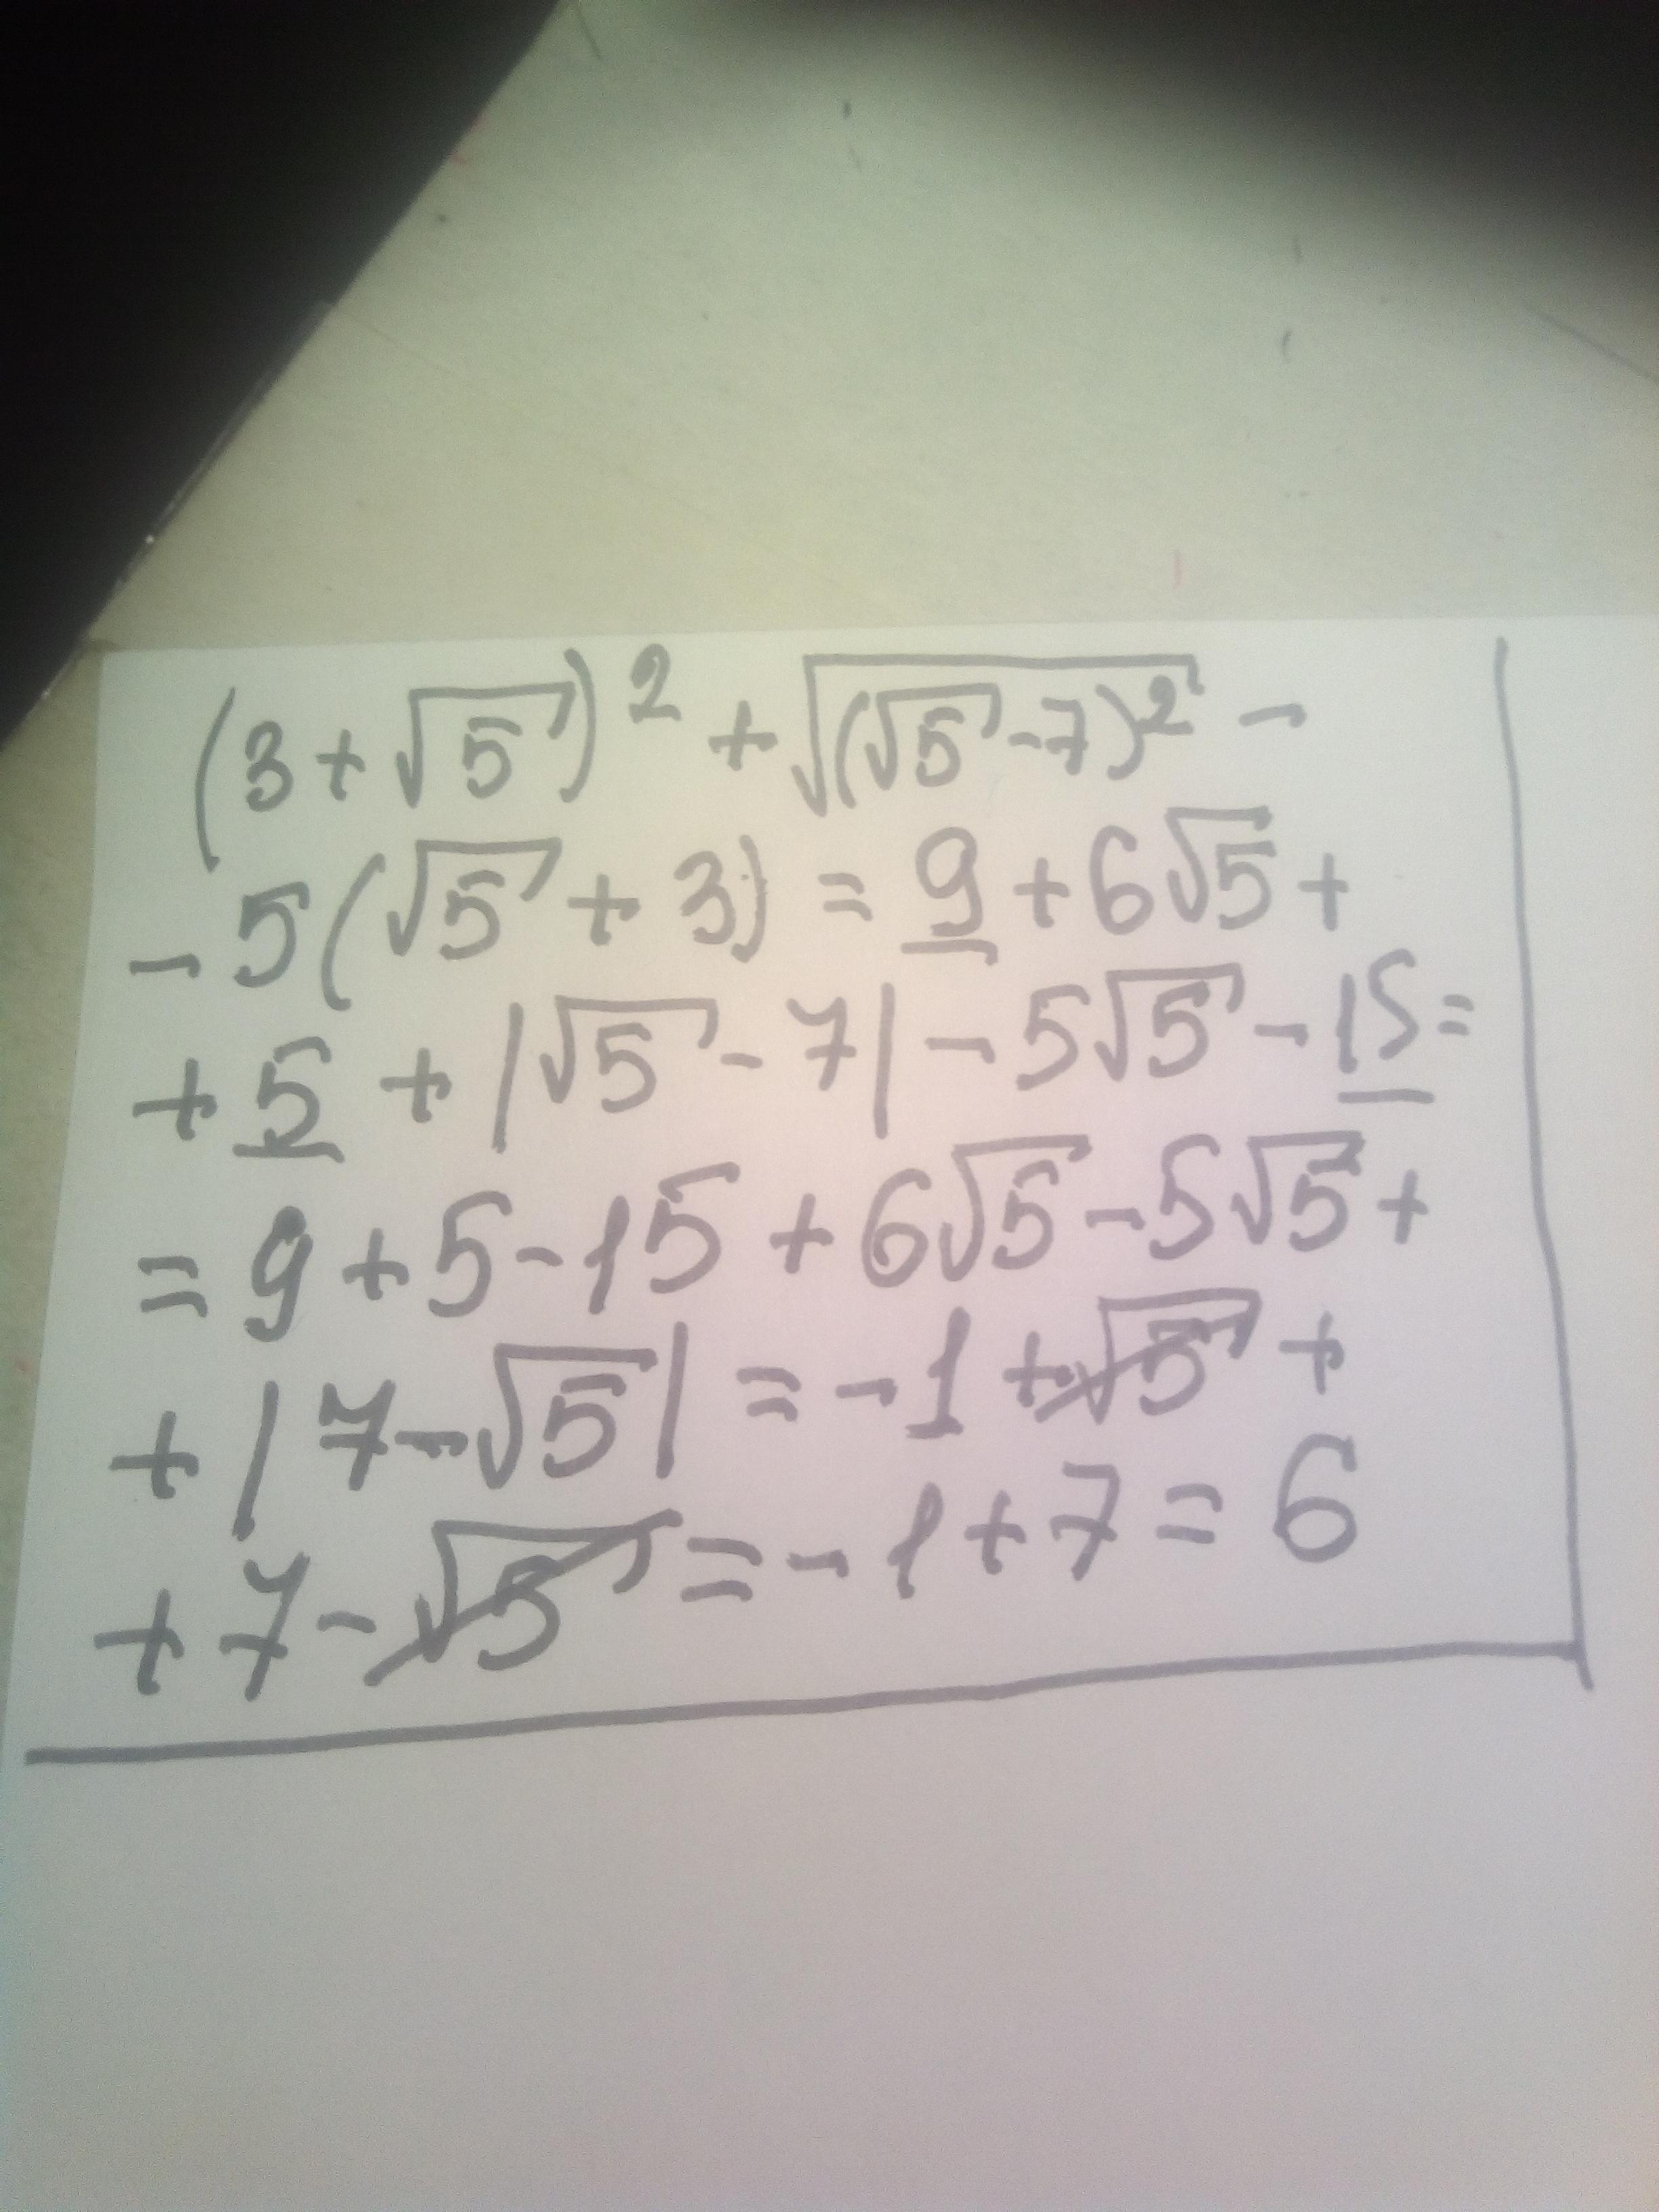 (3+√5)² + √(√5-7)² -
-5(√5+3) = 9+6√5+
+5+|√5-7|-5√5-15=
=9+5-15+6√5-5√5+
+|7-√5|=-1+√5+
+7-√5=-1+7=6